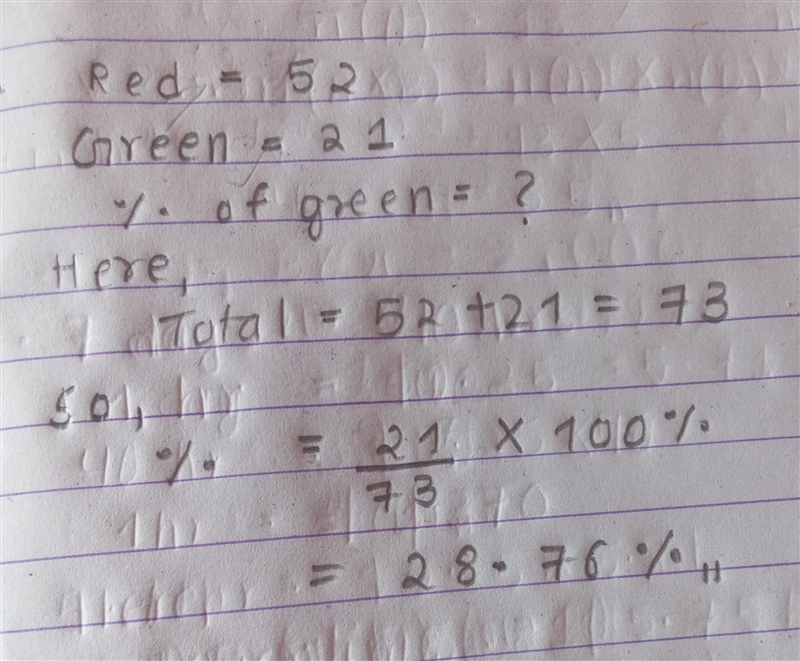 Red = 52
Green = 21
% of green = ?
Here,
Total = 52 + 21 = 73
Sol,
% = 21/73 × 100%
= 28.76%,,